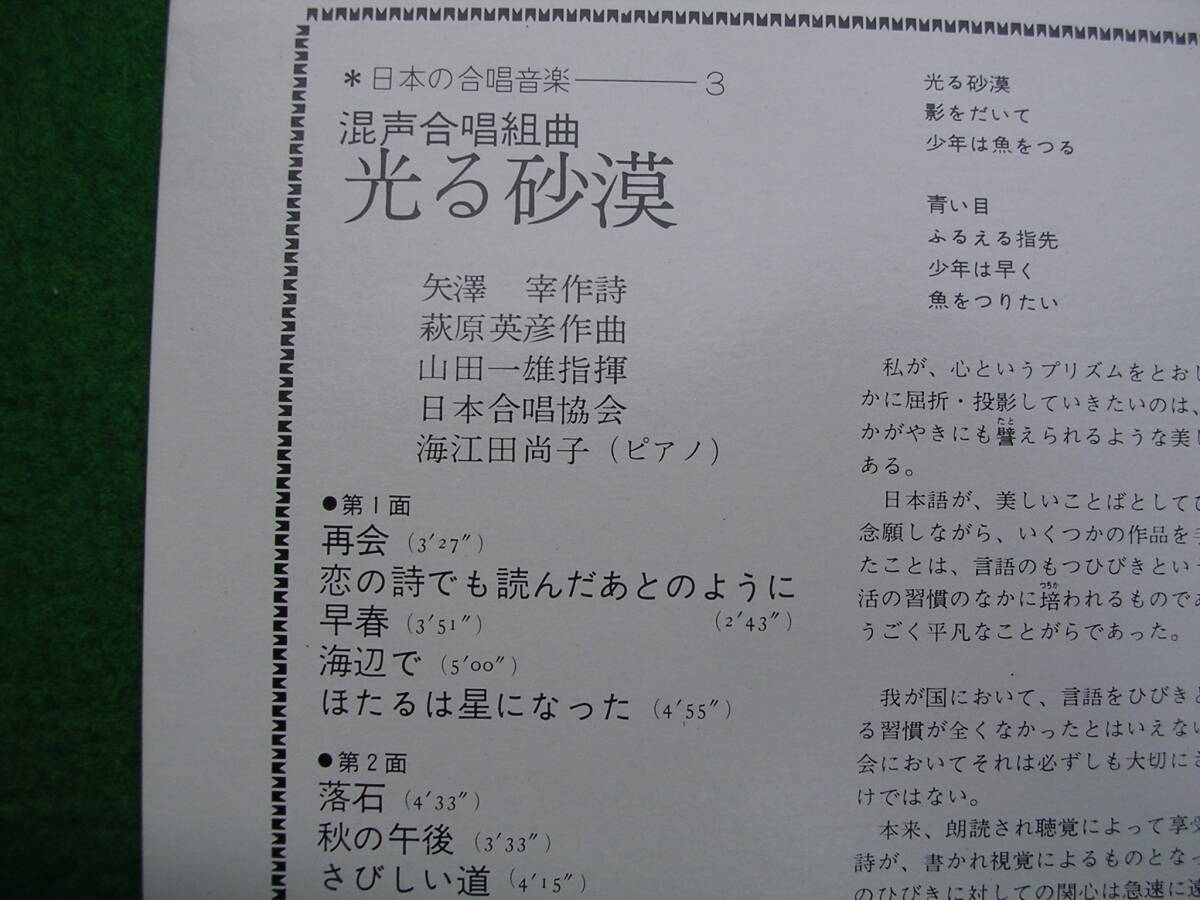 *日本の合唱音楽――3
混声合唱組曲
光る砂漠
矢澤 宰作詩
萩原英彦作曲
山田一雄指揮
日本合唱協会
海江田尚子(ピアノ)
●第1面
再会(3′27″)
恋の詩でも読んだあとのように
(2′43″)
早春(3′51″)
海辺で(5′00″)
ほたるは星になった(4′55″)
●第2面
落石(4′33″)
秋の午後(3′33″)
さびしい道(4′15″)
光る砂漠
影をだいて
少年は魚をつる
青い目
ふるえる指先
少年は早く
魚をつりたい
私が、心というプリズムをとおし
かに屈折・投影していきたいのは、
かがやきにも譬えられるような美し
ある。
日本語が、美しいことばとしてひ
念願しながら、いくつかの作品を手
たことは、言語のもつひびきという
活の習慣のなかに培われるものであ
うごく平凡なことがらであった。
我が国において、言語をひびきと
る習慣が全くなかったとはいえない
会においてそれは必ずしも大切にさ
けではない。
本来、朗読され聴覚によって享受
詩が、書かれ視覚によるものとなっ
のひびきに対しての関心は急速に遠